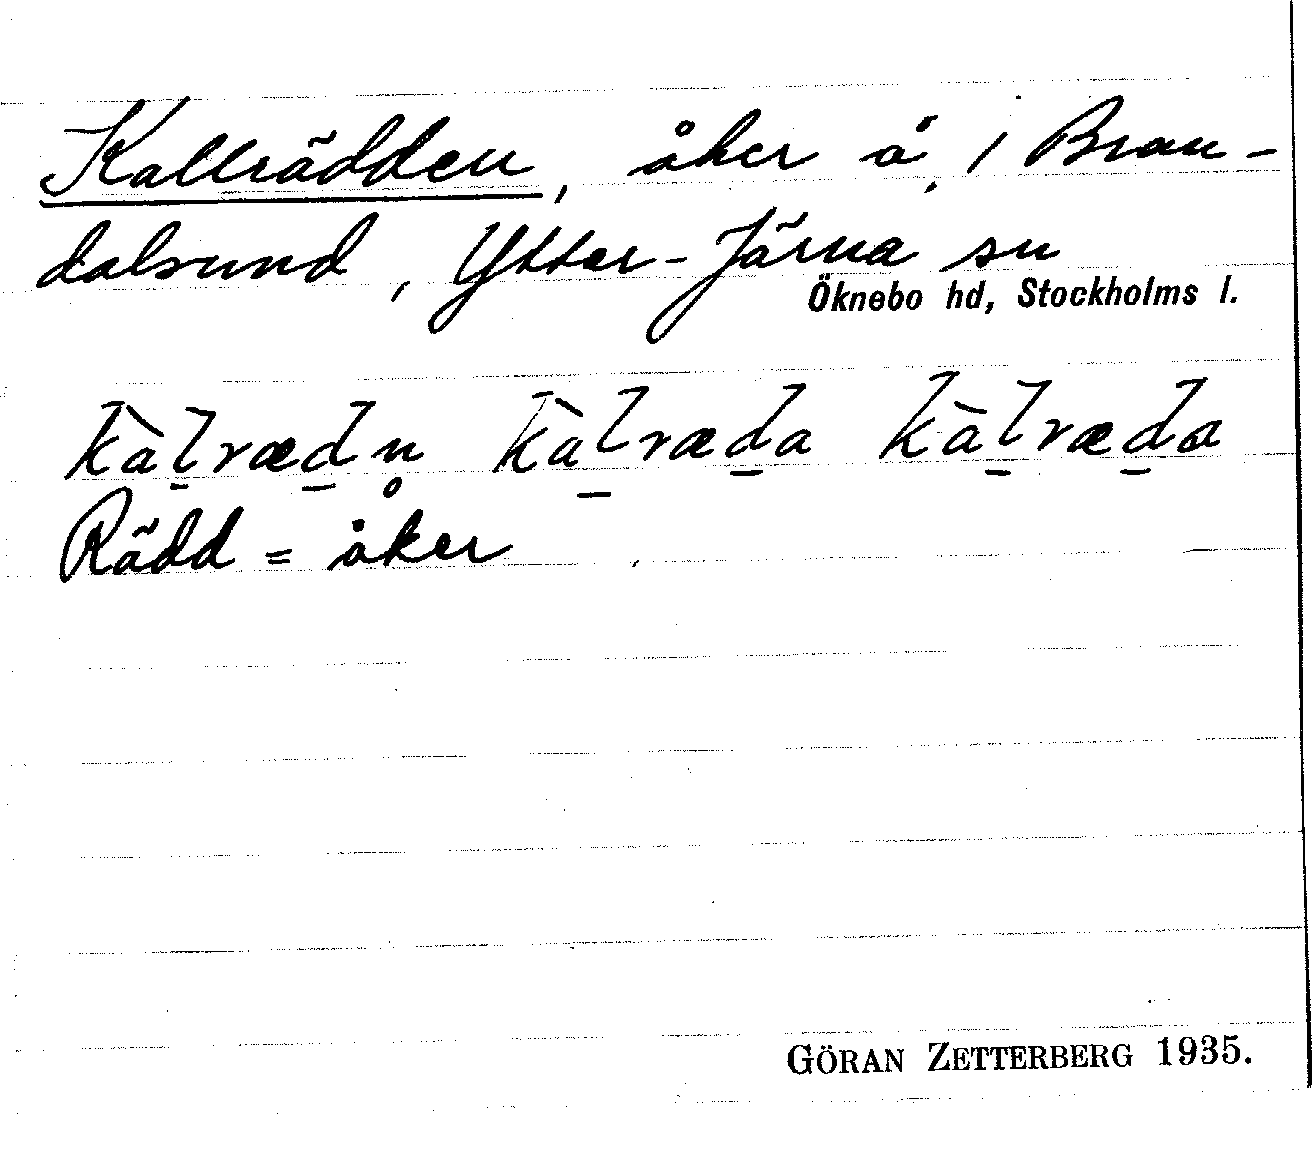 Kallrädden, åker å, i Bran-
dalsund, Ytter-Järna sn
Öknebo hd, Stockholms l.
kàl̠ræd̠n̥ kàl̠ræd̠a kàl̠ræd̠a
Rädd = åker
GÖRAN ZETTERBERG 1935.